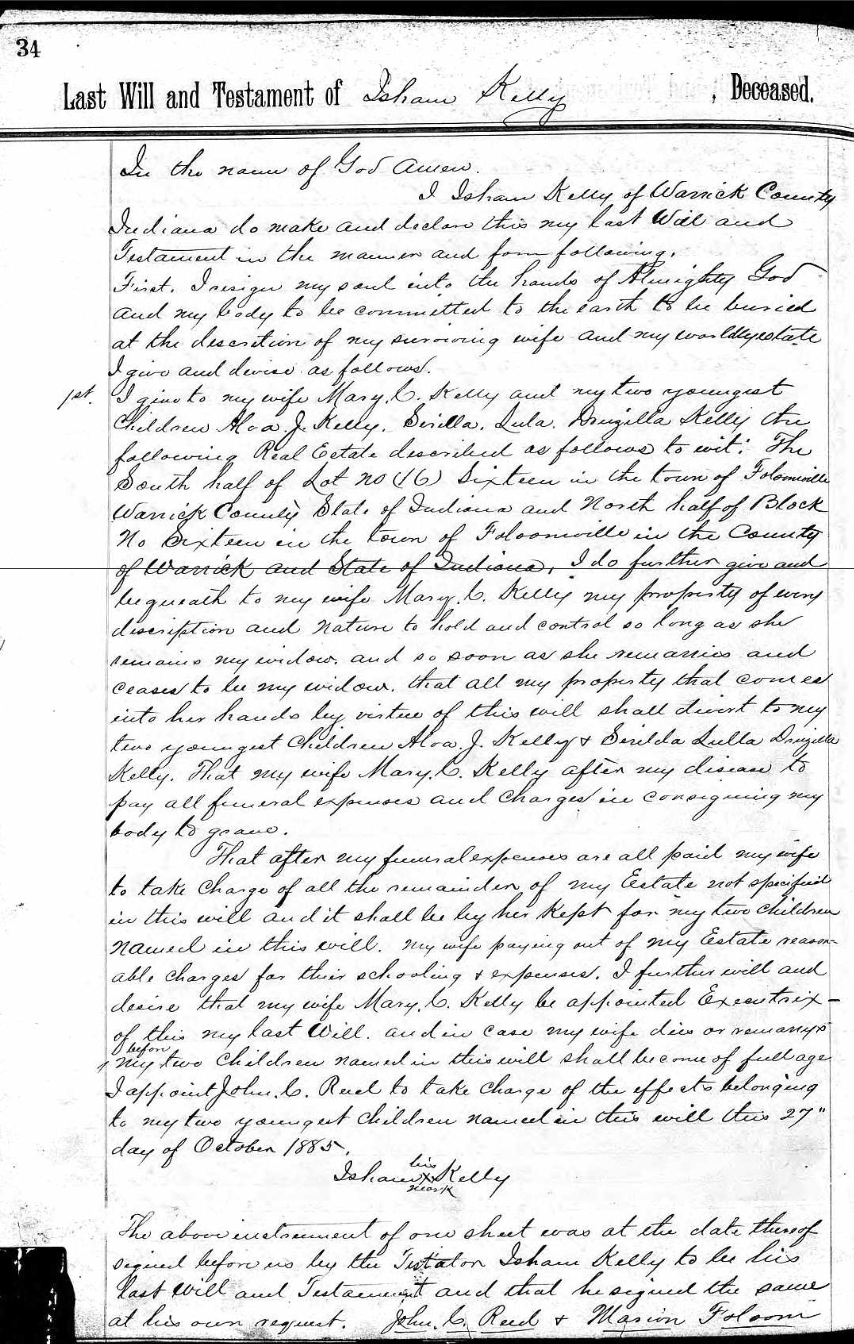 34
Last Will and Testament of Isham Kelly, Deceased.
In the name of God Amen.
I Isham Kelly of Warrick County
Indiana do make and declare this my last Will and
Testament in the manner and form following.
First. I resign my soul into the hands of Almighty God
and my body to be committed to the earth to be buried
at the descretion of my surviving wife and my worldly estate
I give and devise as follows.
1st. I give to my wife Mary. C. Kelly and my two youngest
Children Alva. J. Kelly. Serilla. Lula. Druzilla Kelly the
following Real Estate described as follows to wit: The
South half of Lot no (16) Sixteen in the town of Folsomville
Warrick County State of Indiana and North half of Block
No Sixteen in the town of Folsomville in the County
of Warrick and State of Indiana, I do further give and
bequeath to my wife Mary. C. Kelly my property of every
discription and nature to hold and control so long as she
remains my widow. and so soon as she remarries and
ceases to be my widow. that all my property that comes
into her hands by virtue of this will shall divert to my
two youngest Children Alva. J. Kelly & Serilda Lulla Druzilla
Kelly. That my wife Mary. C. Kelly after my disease to
pay all funeral expenses and charges in consigning my
body to grave.
That after my funeral expenses are all paid my wife
to take charge of all the remainder of my Estate not specified
in this will and it shall be by her kept for my two children
named in this will. my wife paying out of my Estate reason-
able charges for their schooling & expenses. I further will and
desire that my wife Mary. C. Kelly be appointed Executrix-
of this my last Will. and in case my wife dies or remarrys
before
my two children named in this will shall become of full age
I appoint John. C. Reed to take charge of the effects belonging
to my two youngest children named in this will this 27"
day of October 1885.
his
Isham X Kelly
mark
The above instrument of one sheet was at the date thereof
signed before us by the Testator Isham Kelly to be his
last Will and Testament and that he signed the same
at his own request. John. C. Reed & Marion Folsom